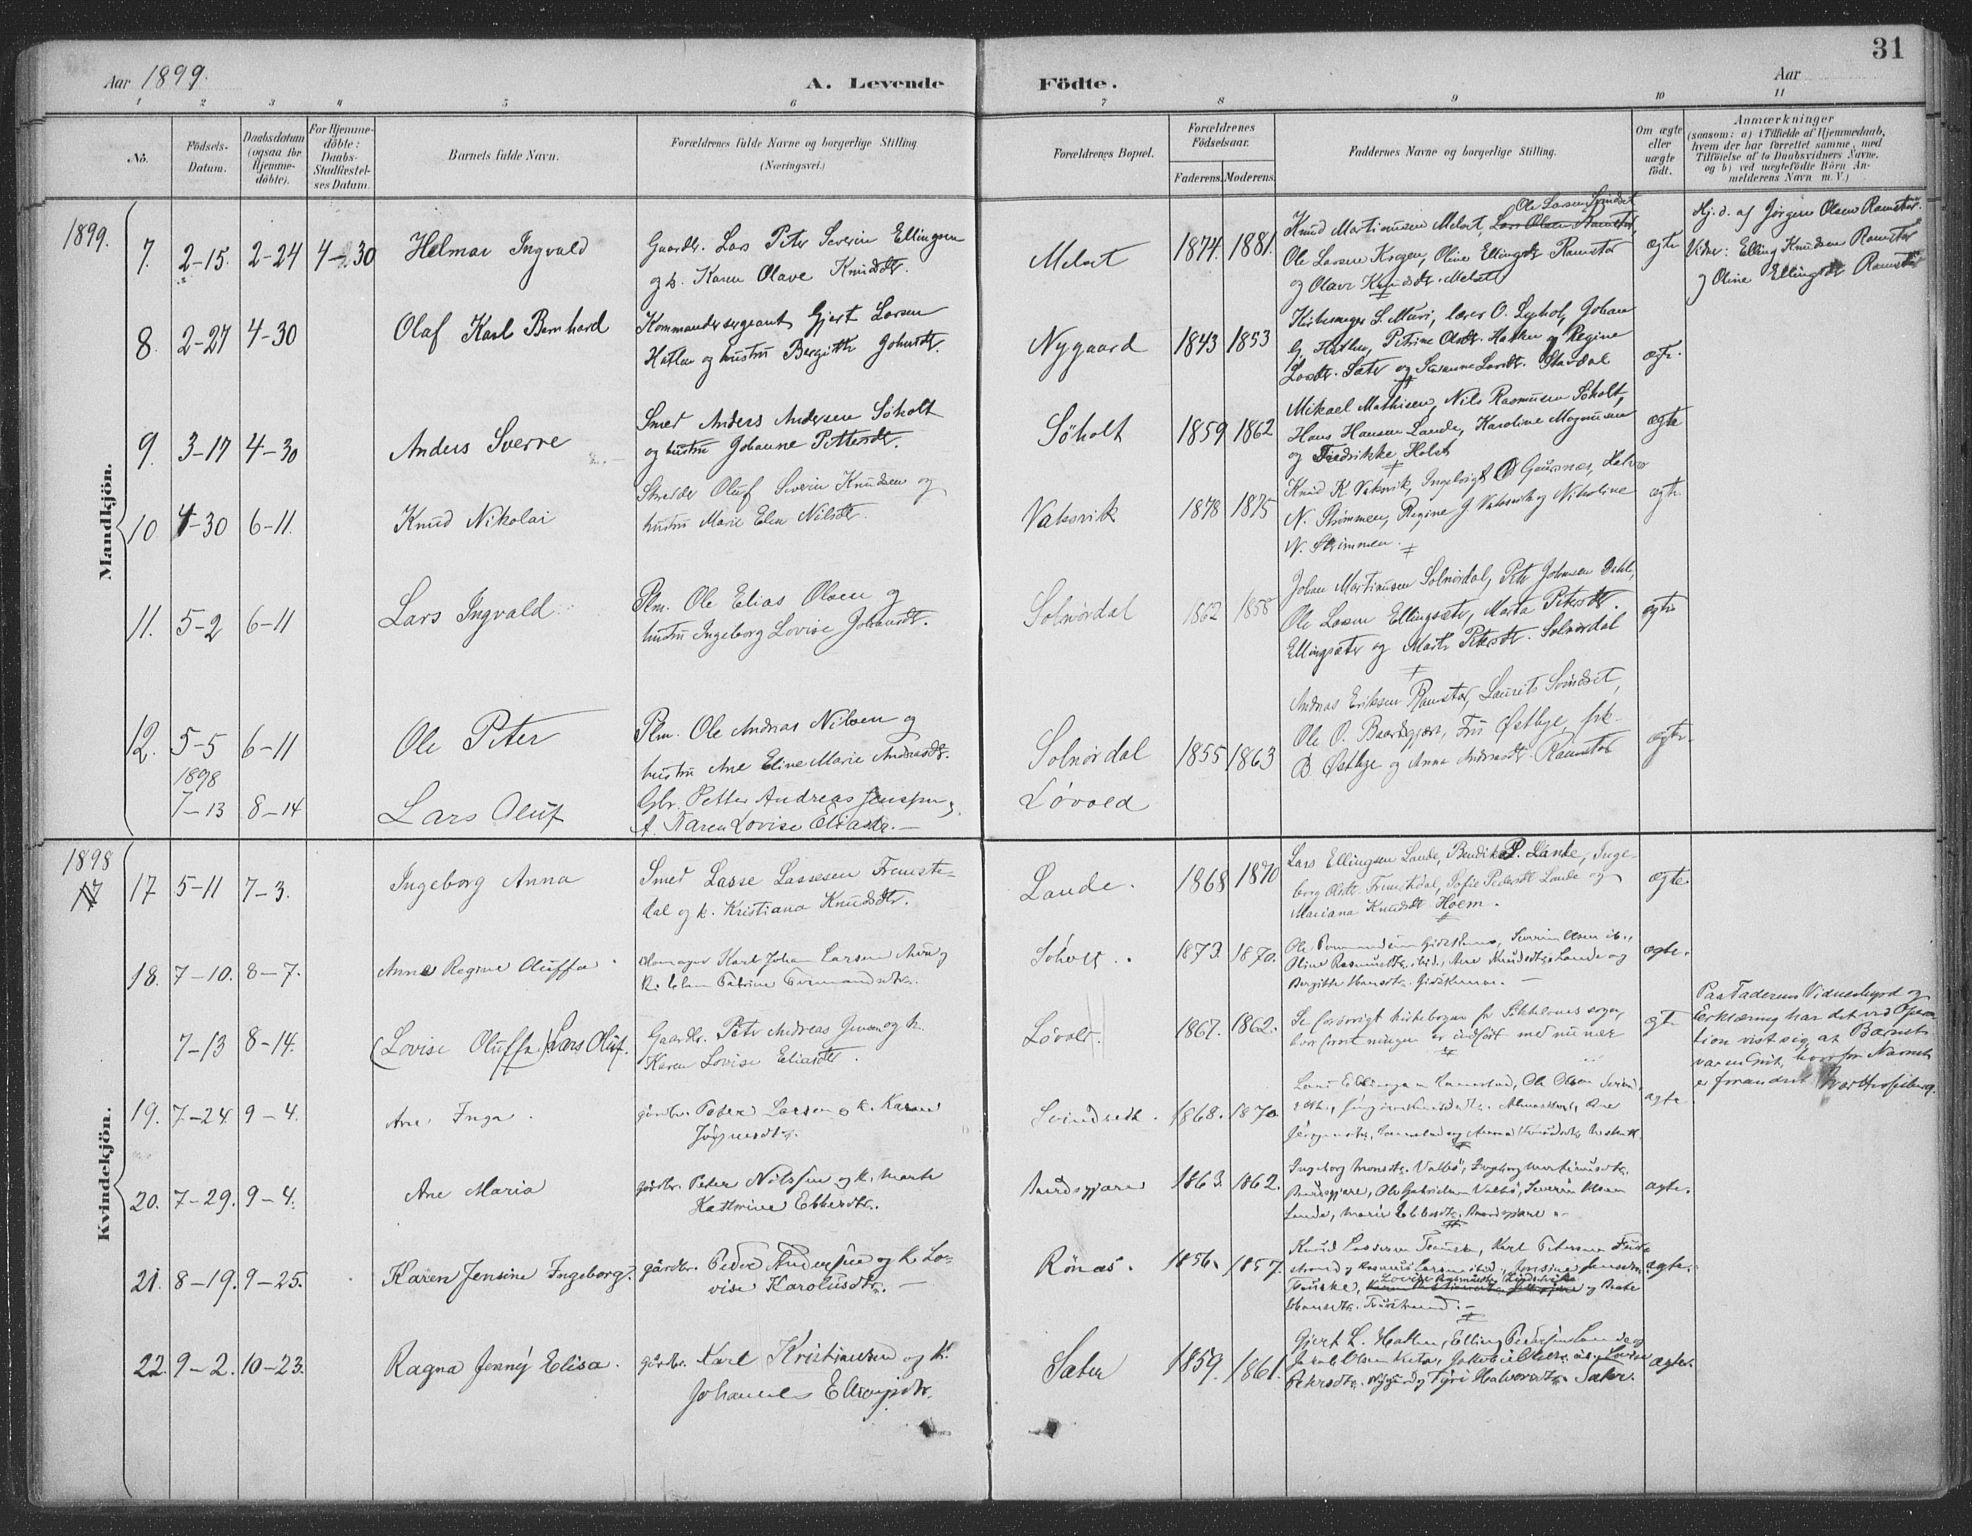 31
Aar 1899. A. Levende Födte. Aar
1 2 3 4 5 6 7 8 9 10 11
No.
Födsels-Datum.
Daabsdatum (ogsaa for Hjemme-döbte).
For Hjemme-döbte: Daabs-Stadfæstel-ses Datum.
Barnets fulde Navn.
Forældrenes fulde Navne og borgerlige Stilling
(Næringsvei.)
Forældrenes Bopæl.
Forældrenes Födselsaar.
Faderens. Moderens.
Faddernes Navne og borgerlige Stilling.
Om ægte eller uægte födt.
Anmærkninger
(saasom: a) i Tilfælde af Hjemmedaab,
hvem der har forrettet samme, med
Tilföielse af to Daabsvidners Navne,
og b) ved uægtefödte Börn An-
melderens Navn m. V.)
Mandkjön.
1899.
7. 2-15. 2-24 4-30 Helmar Ingvald
Gaardbr. Lars Peter Severin Ellingsen
og h. Karen Olave Knudsdtr.
Melset 1874. 1881.
Ole Larsen Svindset
Knud Martinussen Melset, Lars Olsen Ramstad,
Ole Larsen Krogen, Oline Ellingsdtr Ramstad
og Olave Knudsdtr. Melset
ægte
Hj. d. af Jörgen Olsen Ramstad.
Vidner: Elling Knudsen Ramstad
og Oline Ellingsdtr Ramstad
8. 2-27 4-30 Olaf Karl Bernhard
Kommandersergeant Gjert Larsen
Hatlen og hustru Bergitte Johnsdtr.
Nygaard 1843 1853
Kirkesanger S. Muri, lærer O. Lyshol, Johan
G. Hatlen, Petrine Olsdtr. Hatlen og Regine
Larsdtr. Sæter og Susanne Larsdtr. Stavdal
ægte.
9. 3-17 4-30 Anders Sverre
Smed Anders Andersen Söholt
og hustru Johanne Pettersdtr.
Söholt 1859 1862
Mikael Mathisen, Nils Rasmusen Söholt,
Hans Hansen Lande, Karoline Magnusen
og Fredrikke Holst
ægte
10 4-30 6-11. Knud Nikolai
Oluf Severin Knudsen og
hustru Marie Elen Nilsdtr.
Vaksvik 1878 1875
Knud K Vaksvik, Ingebrigt O Gausnæs, Halvor
N. Strömmen, Regine J Vaksvik og Nikoline
N. Strömmen.
ægte.
11. 5-2 6-11 Lars Ingvald
Plm. Ole Elias Olsen og
hustru Ingeborg Lovise Johansdtr.
Solnördal 1862 1858
Johan Martinusen Solnördal, Petr Johnsen Dahl,
Ole Larsen Ellingsæter, Marta Petersdtr.
Ellingsæter og Marte Petersdtr. Solnördal
ægte
12. 5-5 6-11 Ole Peter
Plm. Ole Andreas Nilsen og
hustru Ane Eline Marie Andreasdtr.
Solnördal 1855 1863
Andreas Eriksen Ramstad, Laurits Svindset,
Ole O. Baardsgjære, Fru Østbye, frk.
B Østbye og Anna Andreasdtr. Ramstad
ægte.
1898
7-13 8-14 Lars Oluf
Gbr. Petter Andreas Jensen og
h. Karen Lovise Eliasdtr.
Lövold
Kvindekjön.
1898
17 5-11 7-3. Ingeborg Anna
Smed Lasse Lassesen Fremste-
dal og h. Kristiana Knudsdtr.
Lande. 1868 1870
Lars Ellingsen Lande, Bendik P. Lande, Inge-
borg Olsdtr. Fremstedal, Sofie Pedersdtr Lande og
Mariana Knudsdtr Hoem.
ægte.
18. 7-10. 8-7. Anna Regine Oluffa
Karl Johan Larsen
Söholt. 1873. 1870.
Severin Olsen ib.,
Oline Rasmusdtr. ibid., Ane Knudsdtr. Lande og
Birgitte Hansdtr.
ægte.
7-13 8-14. (Lovise Oluffa) Lars Oluf.
Gaardbr. Petr Andreas Jensen og h.
Karen Lovise Eliasdtr.
Lövold. 1867. 1862.
Se forövrigt kirkebogen for Sökkelvens sogn,
hvor forretningen er indfört med nummer
ægte
Paa Faderens Vidnesbyrd og
Erklæring har det ved Opera-
tion vist sig, at Barnet
var en Gut, hvorfor Navnet
er forandret.
19. 7-24. 9-4. Ane Inga.
gårdbr. Peter Larsen og h. Karen
Jörgensdtr.
Svindseth. 1868. 1870.
ægte.
20. 7-29. 9-4. Ane Maria
gårdbr. Peder Nilssen og h. Marte
Kathrine Ebbesdtr.
Baardsgjære 1863. 1862.
Ingeborg Monsdtr. Valbö, Ingeborg Martinusdtr.
Baardsgjære, Ole Gabrielsen Valbö, Severin Olsen
Lande, Marie Ebbesdtr. Baardsgjære.
ægte.
21. 8-19. 9-25. Karen Jensine Ingeborg.
gårdbr. Peder Andersen og h. Lo-
vise Karolusdtr.
Rönæs. 1856. 1857.
ægte.
22. 9-2. 10-23. Ragna Jenny Elisa.
gårdbr. Karl Kristiansen og h.
Johanne Ellingsdtr.
Sæter 1859. 1861.
Gjert L. Hatlen, Elling Pedersen Lande og
Petersdtr. Nygård og Gyri Halvorsdtr. Sæter.
ægte.